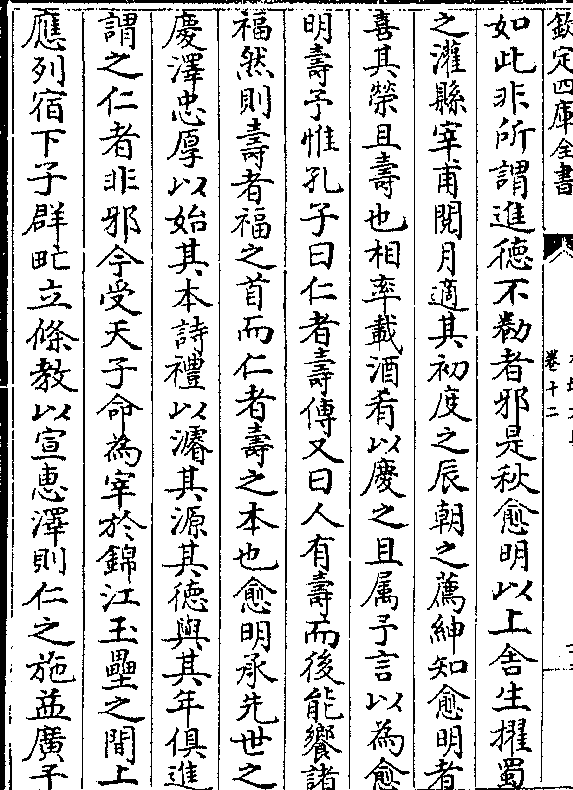 欽定四庫全書
卷十二
如此非所謂進德不勌者邪是秋愈明以上舍生擢蜀
之灌縣宰甫閱月適其初度之辰朝之薦紳知愈明者
喜其榮且壽也相率載酒肴以慶之且属予言以為愈
明壽予惟孔子曰仁者壽傳又曰人有壽而後能饗諸
福然則壽者福之首而仁者壽之本也愈明承先世之
慶澤忠厚以始其本詩禮以濬其源其德與其年俱進
謂之仁者非邪今受天子命為宰於錦江玉壘之間上
應列宿下子群甿立條教以宣惠澤則仁之施益廣予